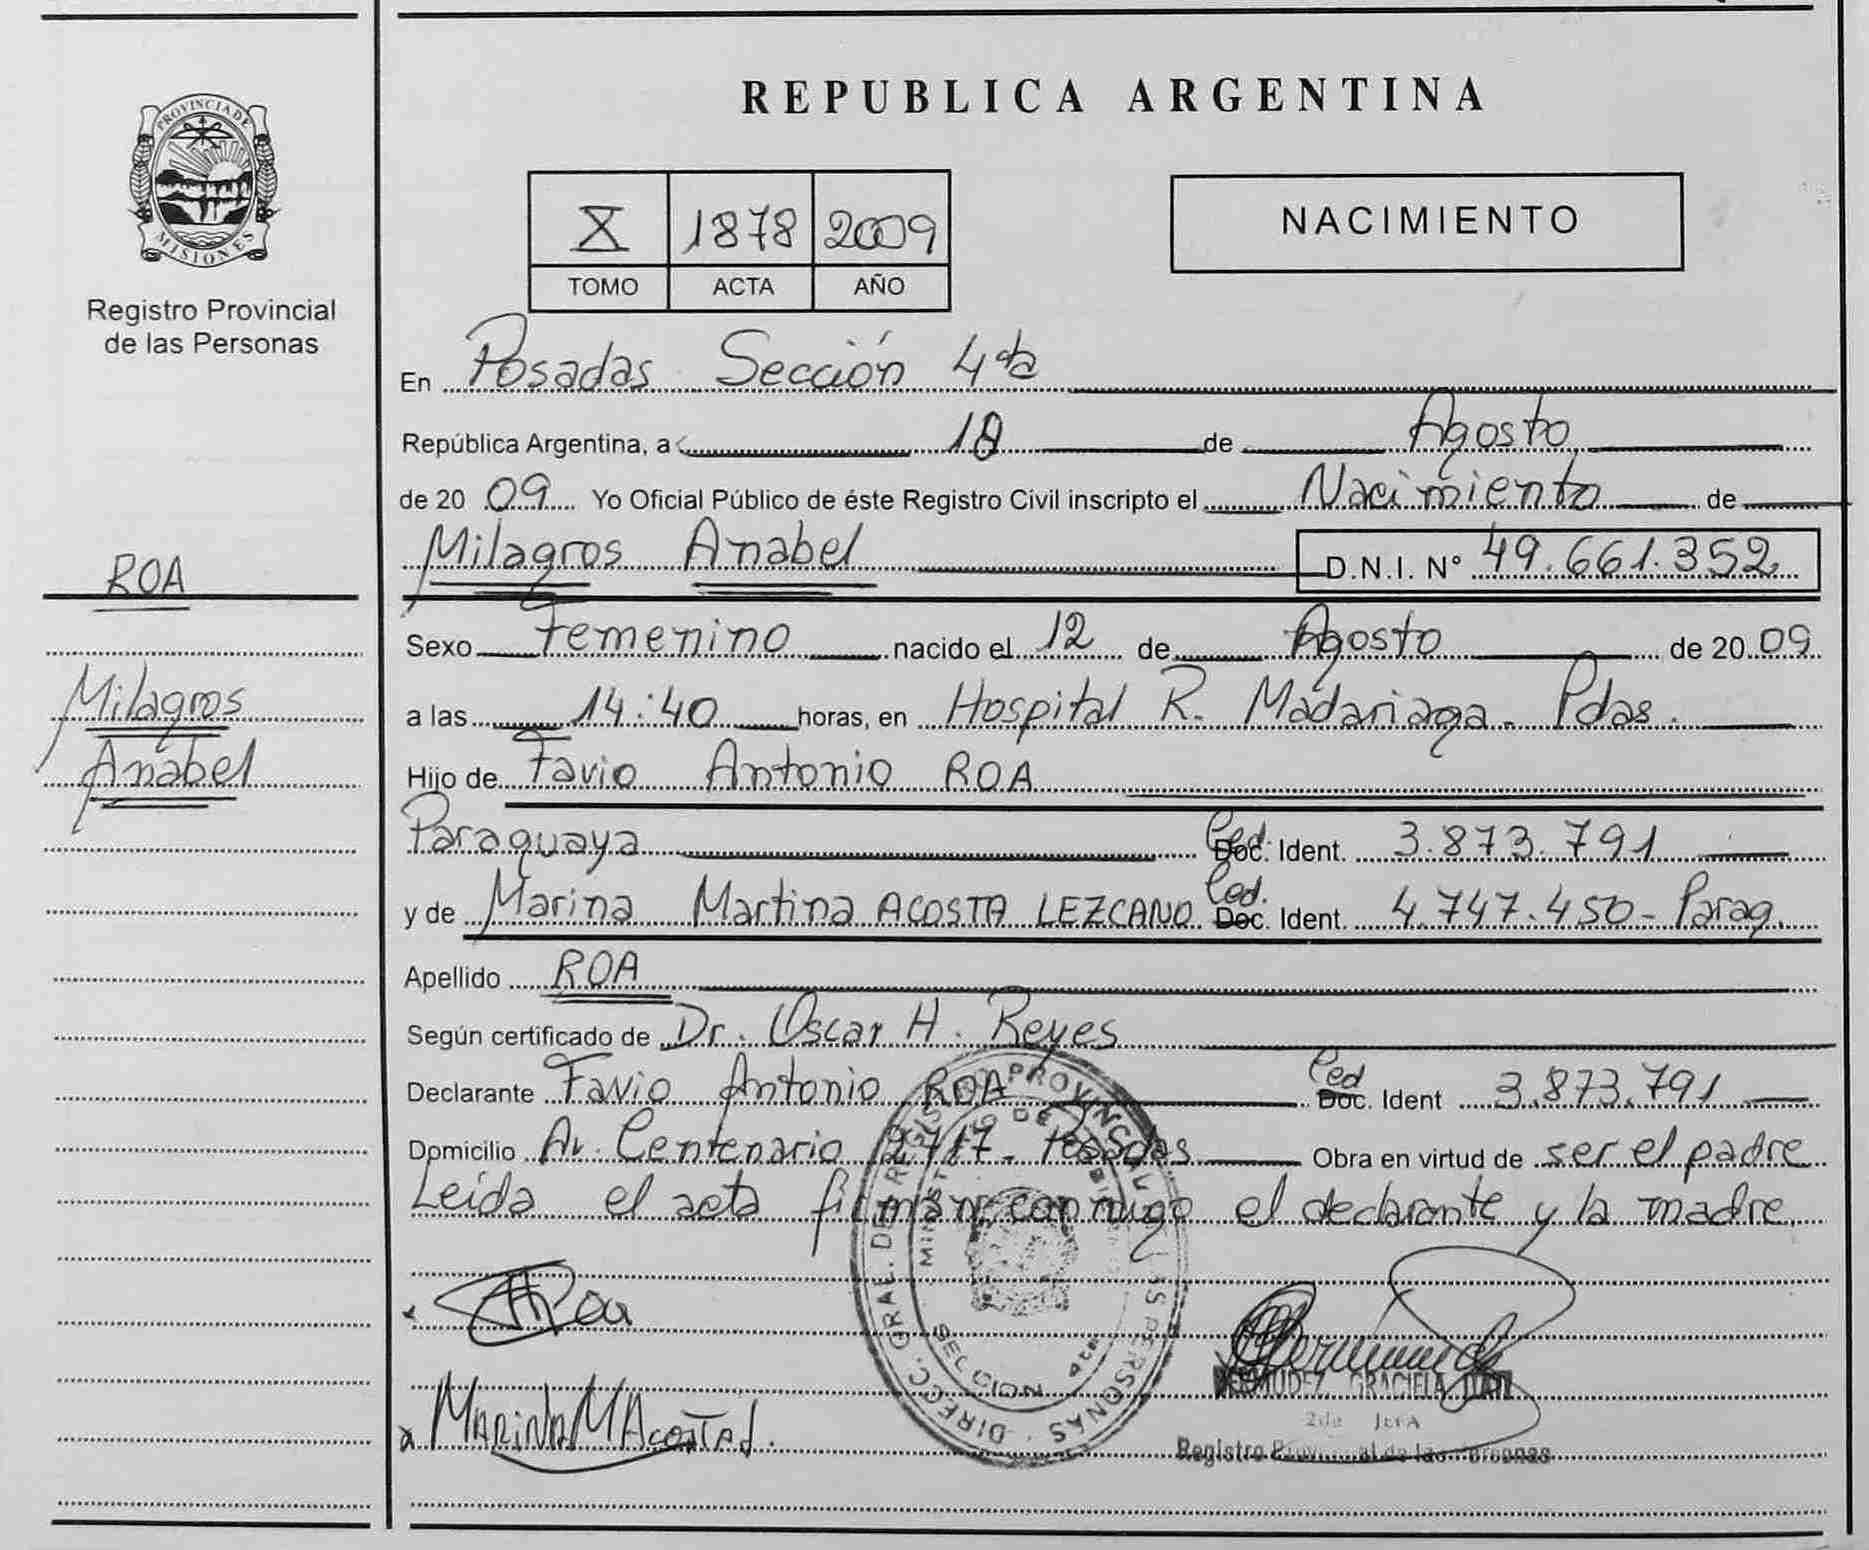 PROVINCIA DE
MISIONES
Registro Provincial
de las Personas
ROA
Milagros
Anabel
REPUBLICA ARGENTINA
X 1878 2009
TOMO ACTA AÑO
NACIMIENTO
En Posadas Sección 4ta
República Argentina, a 18 de Agosto
de 2009 Yo Oficial Público de éste Registro Civil inscripto el Nacimiento de
Milagros Anabel D.N.I. N° 49.661.352
Sexo Femenino nacido el 12 de Agosto de 2009
a las 14:40 horas, en Hospital R. Madariaga - Pdas.
Hijo de Favio Antonio ROA
Paraguaya Ced. Doc. Ident. 3.873.791
y de Marina Martina ACOSTA LEZCANO Ced. Doc. Ident. 4.747.450 - Parag.
Apellido ROA
Según certificado de Dr. Oscar H. Reyes
Declarante Favio Antonio ROA Ced Doc. Ident 3.873.791
Domicilio Av. Centenario 2717 - Posadas Obra en virtud de ser el padre
Leída el acta firman conmigo el declarante y la madre.
Roa
BERMUDEZ GRACIELA
Jefa
Marina M Acosta
Registro Provincial de las Personas